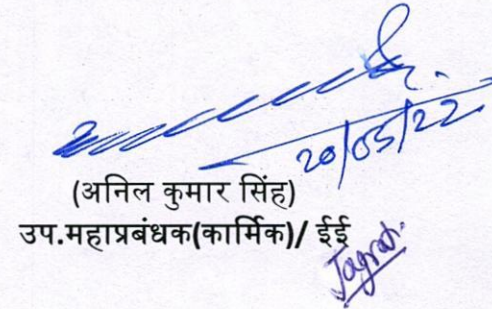 20/05/22
(अनिल कुमार सिंह)
उप.महाप्रबंधक(कार्मिक)/ ईई
Jagrati